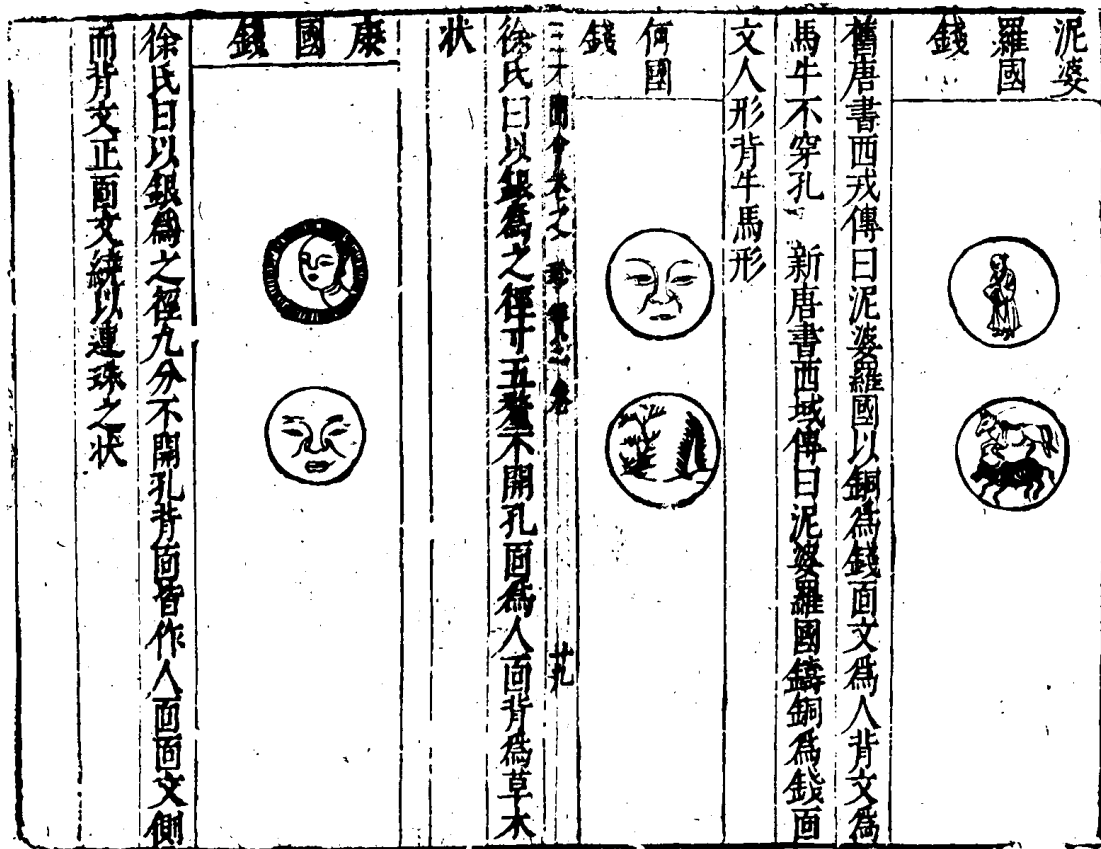 泥婆
羅國
錢
舊唐書西戎傳曰泥婆羅國以銅爲錢面文爲人背文爲
馬牛不穿孔　新唐書西域傳曰泥婆羅國鑄銅爲錢面
文人形背牛馬形
何國
錢
三才圖會 珍寶 卷 廿九
徐氏曰以銀爲之徑寸五釐不開孔面爲人面背爲草木
状
康國錢
徐氏曰以銀爲之徑九分不開孔背面皆作人面面文側
而背文正面文繞以連珠之状